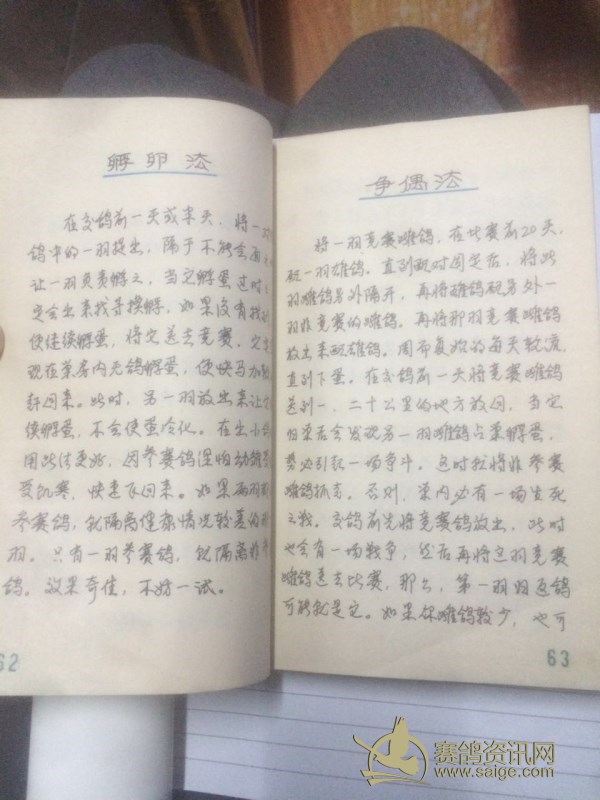 孵卵法
在交鸽前一天或半天，将一
鸽中的一羽提出，隔于不能会面
让一羽负责孵之，当它孵蛋过时
定会出来找寻换孵，如果没有找
使继续孵蛋，将它送去竞赛，它
现在巢房内无鸽孵蛋，便快马加
赶回来。此时，另一羽放出来让
续孵蛋，不会使蛋冷化。在出小
用此法更好，因参赛鸽浬怕幼雏
受饥寒，快速飞回来。如果两羽
参赛鸽，就隔离健都情况较差的
羽。只有一羽参赛鸽，就隔离非
鸽。效果奇佳，不妨一试。
62
争偶法
将一羽竞赛雌鸽，在比赛前20天，
配一羽雄鸽。直到配对固定后，将此
羽雌鸽另外隔开，再将雄鸽配另外一
羽非竞赛的雌鸽。再将那羽竞赛雌鸽
放出来配雄鸽。周而复始的每天轮流，
直到下蛋。在交鸽前一天将竞赛雌鸽
送到一、二十公里的地方放回，当它
归巢后会发现另一羽雌鸽占巢孵蛋，
势必引起一场争斗。这时就将非参赛
雌鸽抓去。否则，巢内必有一场生死
之战。交鸽前先将竞赛鸽放出，此时
也会有一场战争，然后再将这羽竞赛
雌鸽送去比赛，那么，第一羽归返鸽
可能就是它。如果你雌鸽较少，也可
63
赛鸽资讯网
www.saige.com